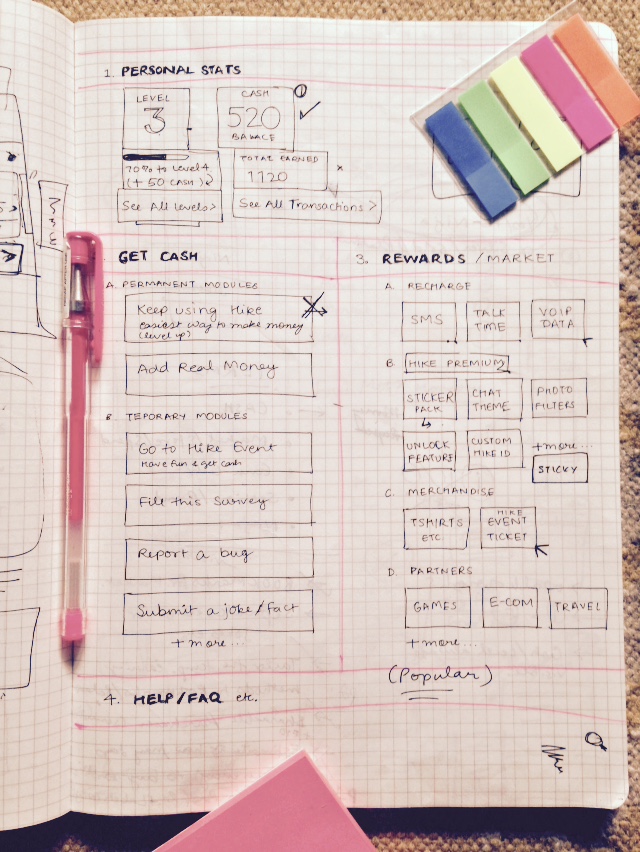 1. PERSONAL STATS
LEVEL
3
CASH
520
BALANCE
1
70% to Level 4
(+ 50 CASH)
TOTAL EARNED
1120
x
See All Levels >
See All Transactions >
GET CASH
A. PERMANENT MODULES
Keep using Hike
easiest way to make money
(level up)
Add Real Money
B. TEPORARY MODULES
Go to Hike Event
Have fun & get cash
Fill this Survey
Report a bug
Submit a joke/fact
+ more...
3. REWARDS / MARKET
A. RECHARGE
SMS
TALK
TIME
VOIP
DATA
B. HIKE PREMIUM
STICKER
PACK
CHAT
THEME
PHOTO
FILTERS
UNLOCK
FEATURE
CUSTOM
HIKE ID
+more...
STICKY
C. MERCHANDISE
TSHIRTS
ETC
HIKE
EVENT
TICKET
D. PARTNERS
GAMES
E-COM
TRAVEL
+ more...
(Popular)
4. HELP/FAQ etc.